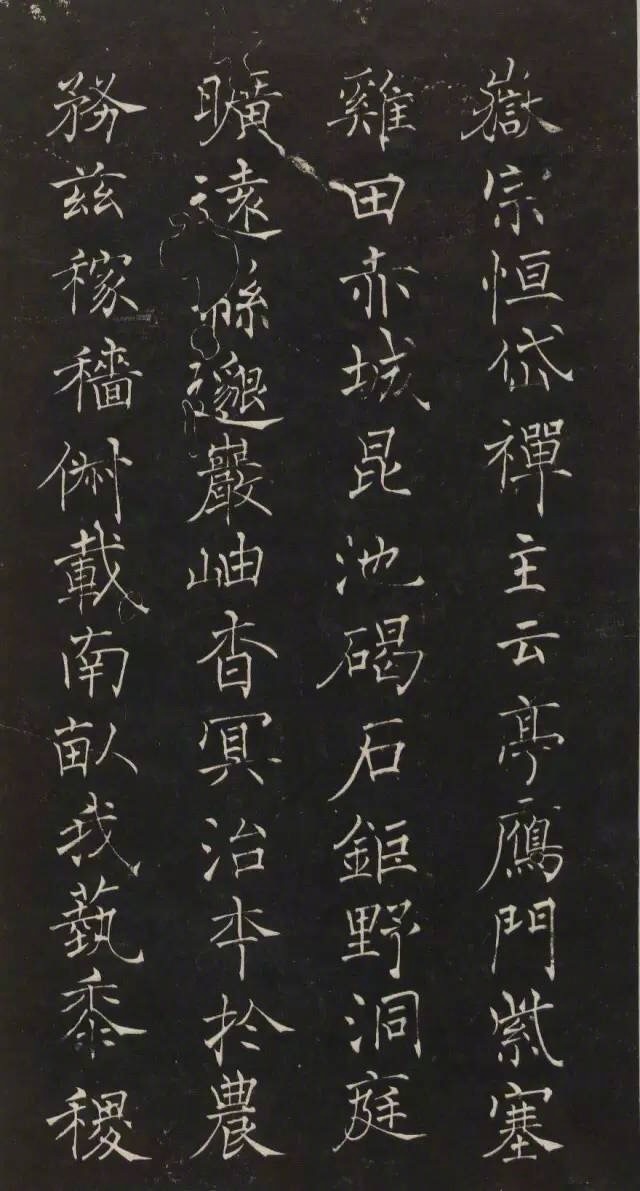 嶽宗恒岱禪主云亭鴈門紫塞
雞田赤城昆池碣石鉅野洞庭
曠遠緜邈巖岫杳冥治夲於農
務兹稼穡俶載南畝我藝黍稷